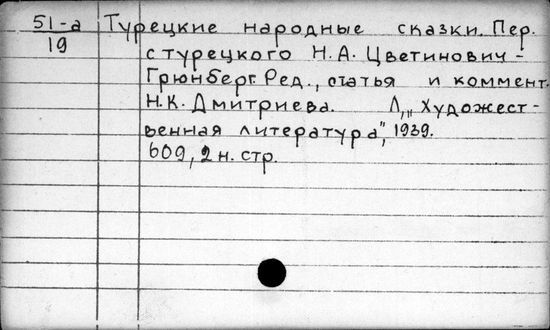 51-а Турецкие народные сказки. Пер.
19 с турецкого Н.А. Цветинович-
Грюнберг Ред., статья и коммент.
Н.К. Дмитриева. Л., „Художест-
венная литература", 1939.
609, 2 н. стр.